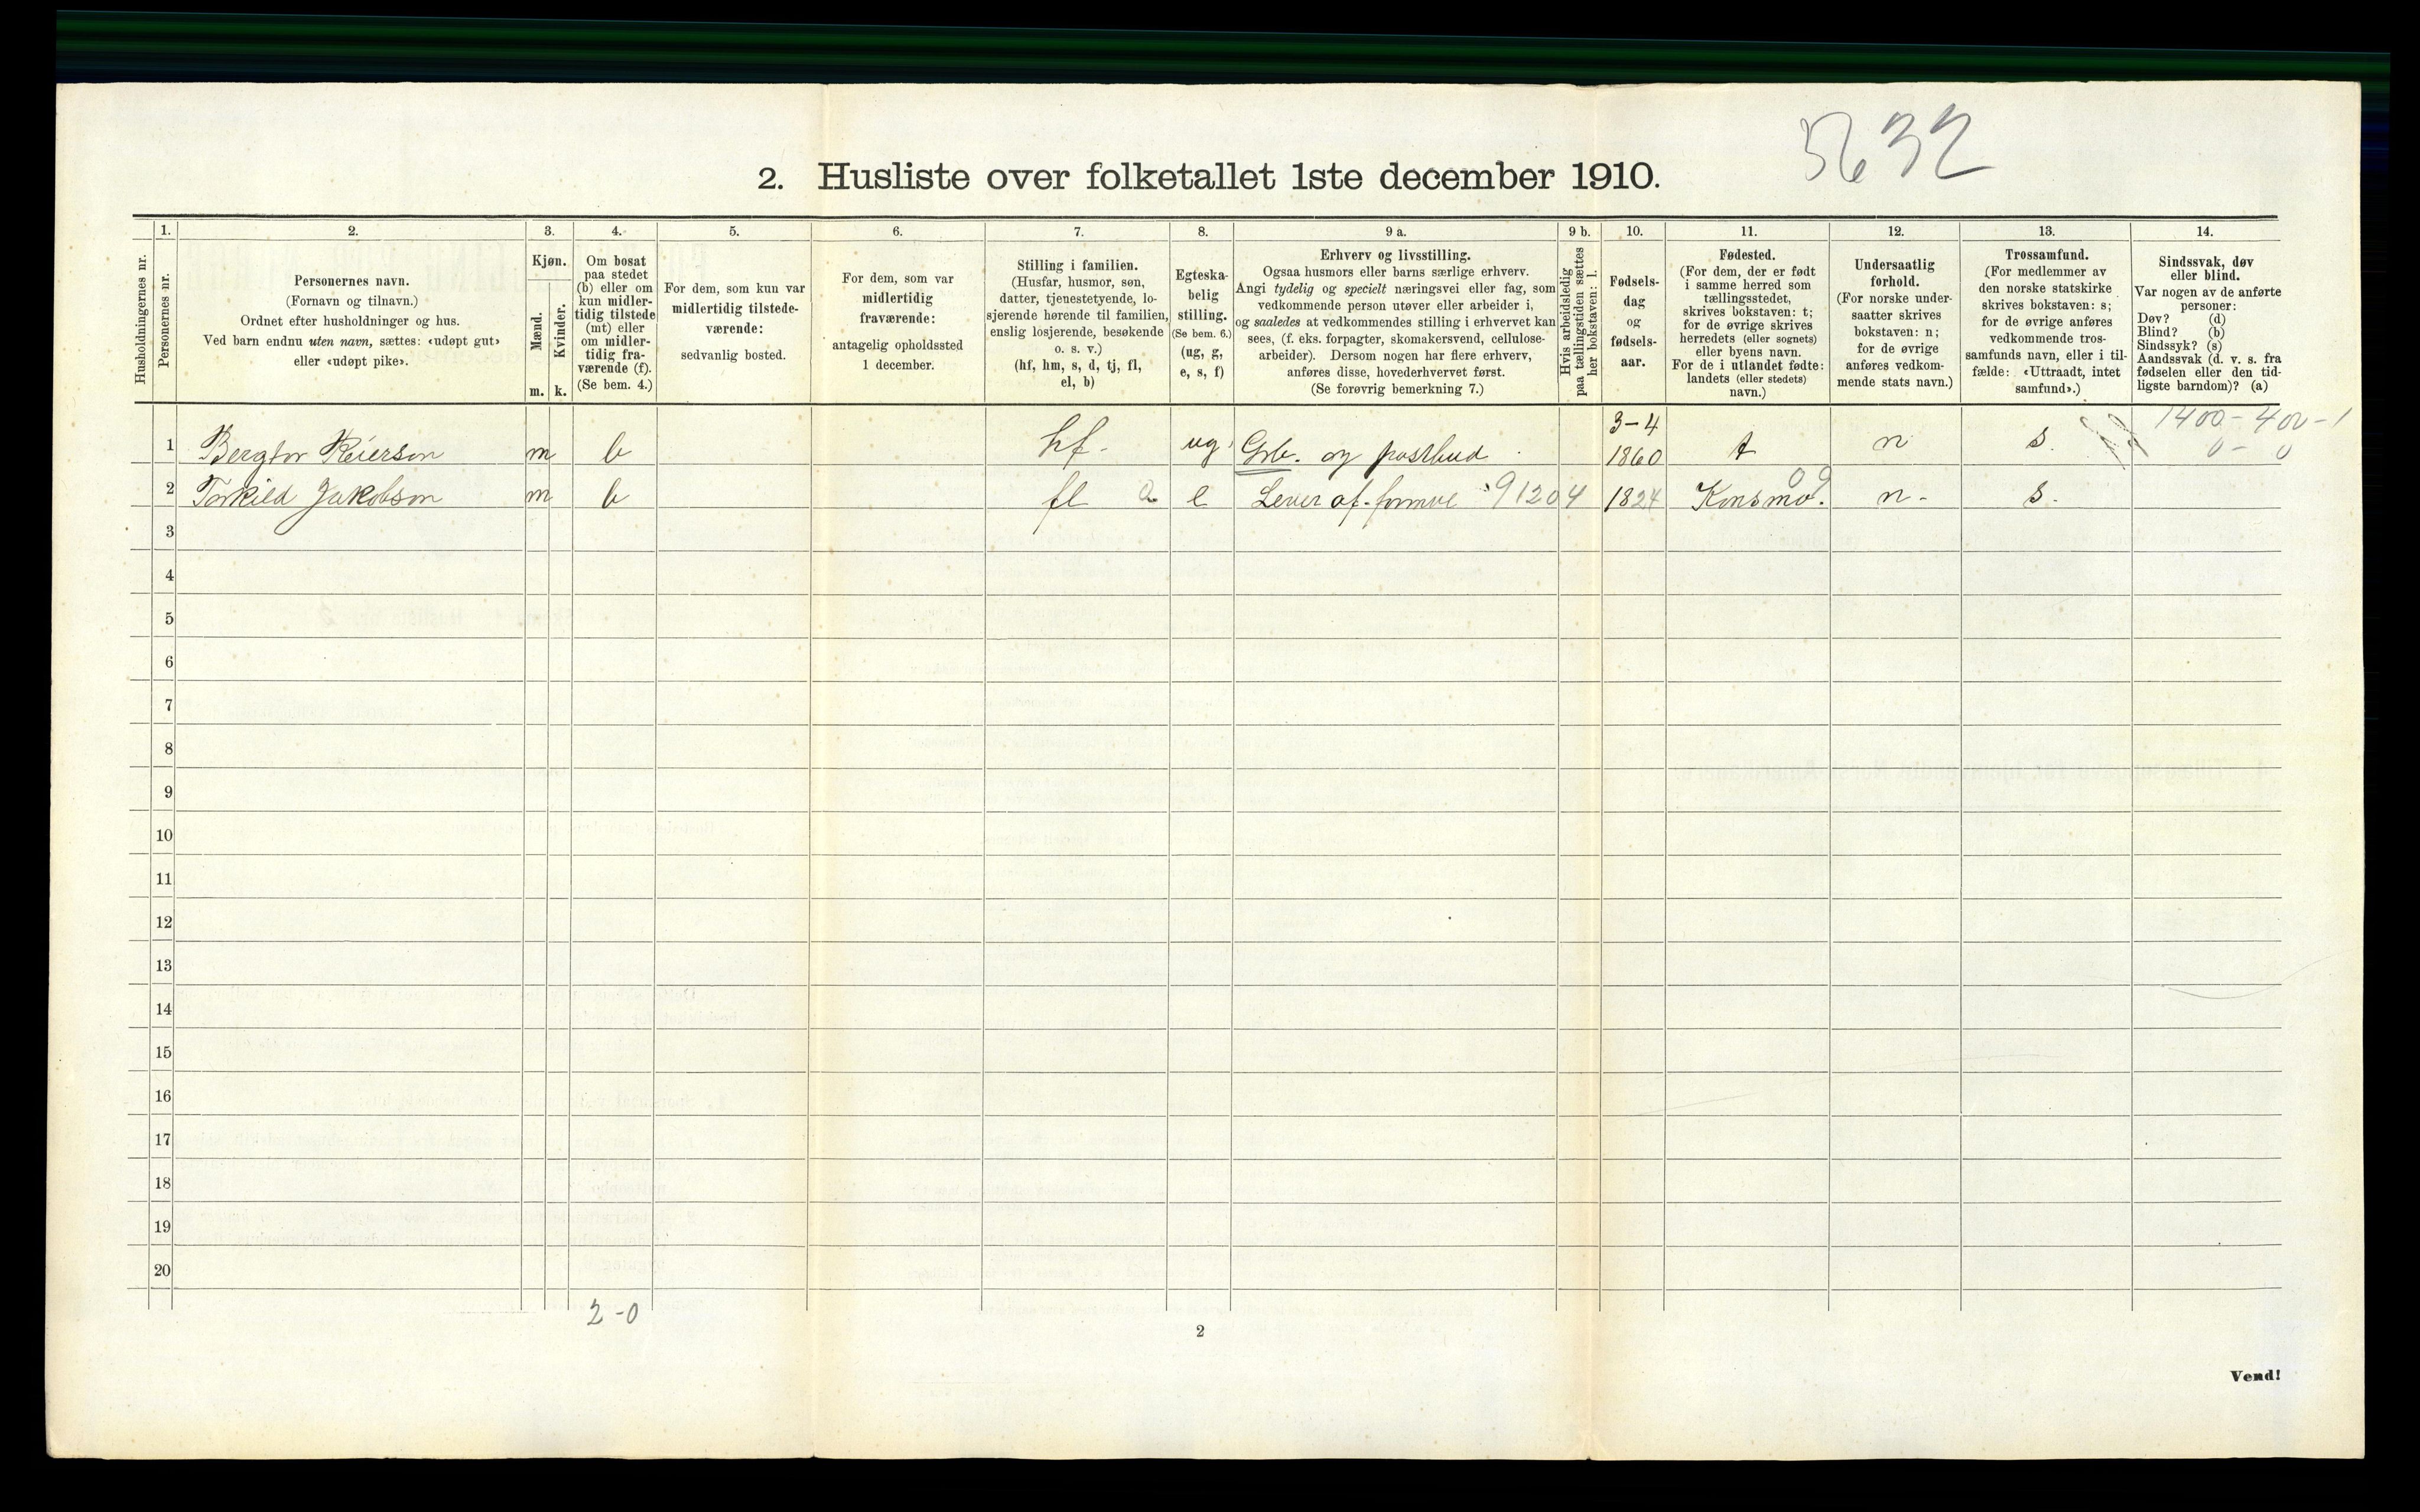 5632
2. Husliste over folketallet 1ste december 1910.
Husholdningernes nr.
1.
Personernes nr.
2.
Personernes navn.
(Fornavn og tilnavn.)
Ordnet efter husholdninger og hus.
Ved barn endnu uten navn, sættes: «udøpt gut»
eller «udøpt pike».
3.
Kjøn.
Mænd.
Kvinder.
m. k.
4.
Om bosat
paa stedet
(b) eller om
kun midler-
tidig tilstede
(mt) eller
om midler-
tidig fra-
værende (f).
(Se bem. 4.)
5.
For dem, som kun var
midlertidig tilstede-
værende:
sedvanlig bosted.
6.
For dem, som var
midlertidig
fraværende:
antagelig opholdssted
1 december.
7.
Stilling i familien.
(Husfar, husmor, søn,
datter, tjenestetyende, lo-
sjerende hørende til familien,
enslig losjerende, besøkende
o. s. v.)
(hf, hm, s, d, tj, fl,
el, b)
8.
Egteska-
belig
stilling.
(Se bem. 6.)
(ug, g,
e, s, f)
9 a.
Erhverv og livsstilling.
Ogsaa husmors eller barns særlige erhverv.
Angi tydelig og specielt næringsvei eller fag, som
vedkommende person utøver eller arbeider i,
og saaledes at vedkommendes stilling i erhvervet kan
sees, (f. eks. forpagter, skomakersvend, cellulose-
arbeider). Dersom nogen har flere erhverv,
anføres disse, hovederhvervet først.
(Se forøvrig bemerkning 7.)
9 b.
Hvis arbeidsledig
paa tællingstiden sættes
her bokstaven: l.
10.
Fødsels-
dag
og
fødsels-
aar.
11.
Fødested.
(For dem, der er født
i samme herred som
tællingsstedet,
skrives bokstaven: t;
for de øvrige skrives
herredets (eller sognets)
eller byens navn.
For de i utlandet fødte:
landets (eller stedets)
navn.)
12.
Undersaatlig
forhold.
(For norske under-
saatter skrives
bokstaven: n;
for de øvrige
anføres vedkom-
mende stats navn.)
13.
Trossamfund.
(For medlemmer av
den norske statskirke
skrives bokstaven: s;
for de øvrige anføres
vedkommende tros-
samfunds navn, eller i til-
fælde: «Uttraadt, intet
samfund».)
14.
Sindssvak, døv
eller blind.
Var nogen av de anførte
personer:
Døv? (d)
Blind? (b)
Sindssyk? (s)
Aandssvak (d. v. s. fra
fødselen eller den tid-
ligste barndom)? (a)
1400-400-1
0-0
1 Bergtor Reierson m b hf. ug. Grb. og postbud. 3-4 1860 t n s.
09
2 Torkild Jakobson m b fl a e Lever af formue 91204 1824 Konsmo. n. s.
3
4
5
6
7
8
9
10
11
12
13
14
15
16
17
18
19
20
2-0
2
Vend!